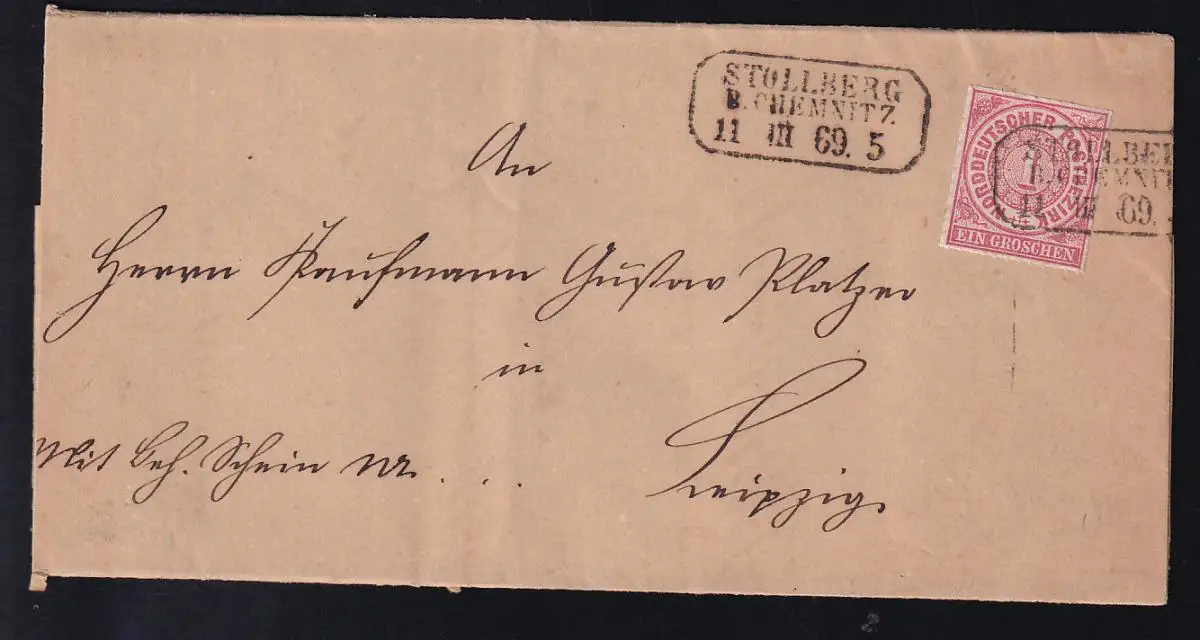 STOLLBERG
B. CHEMNITZ
11 III 69. 5
NORDDEUTSCHER POSTBEZIRK
1
EIN GROSCHEN
STOLLBE
B. CHEMNIT
11 III 69.
An
Herrn Kaufmann Gustav Platzer
in
Leipzig.
Mit Beh. Schein Nr. . . .